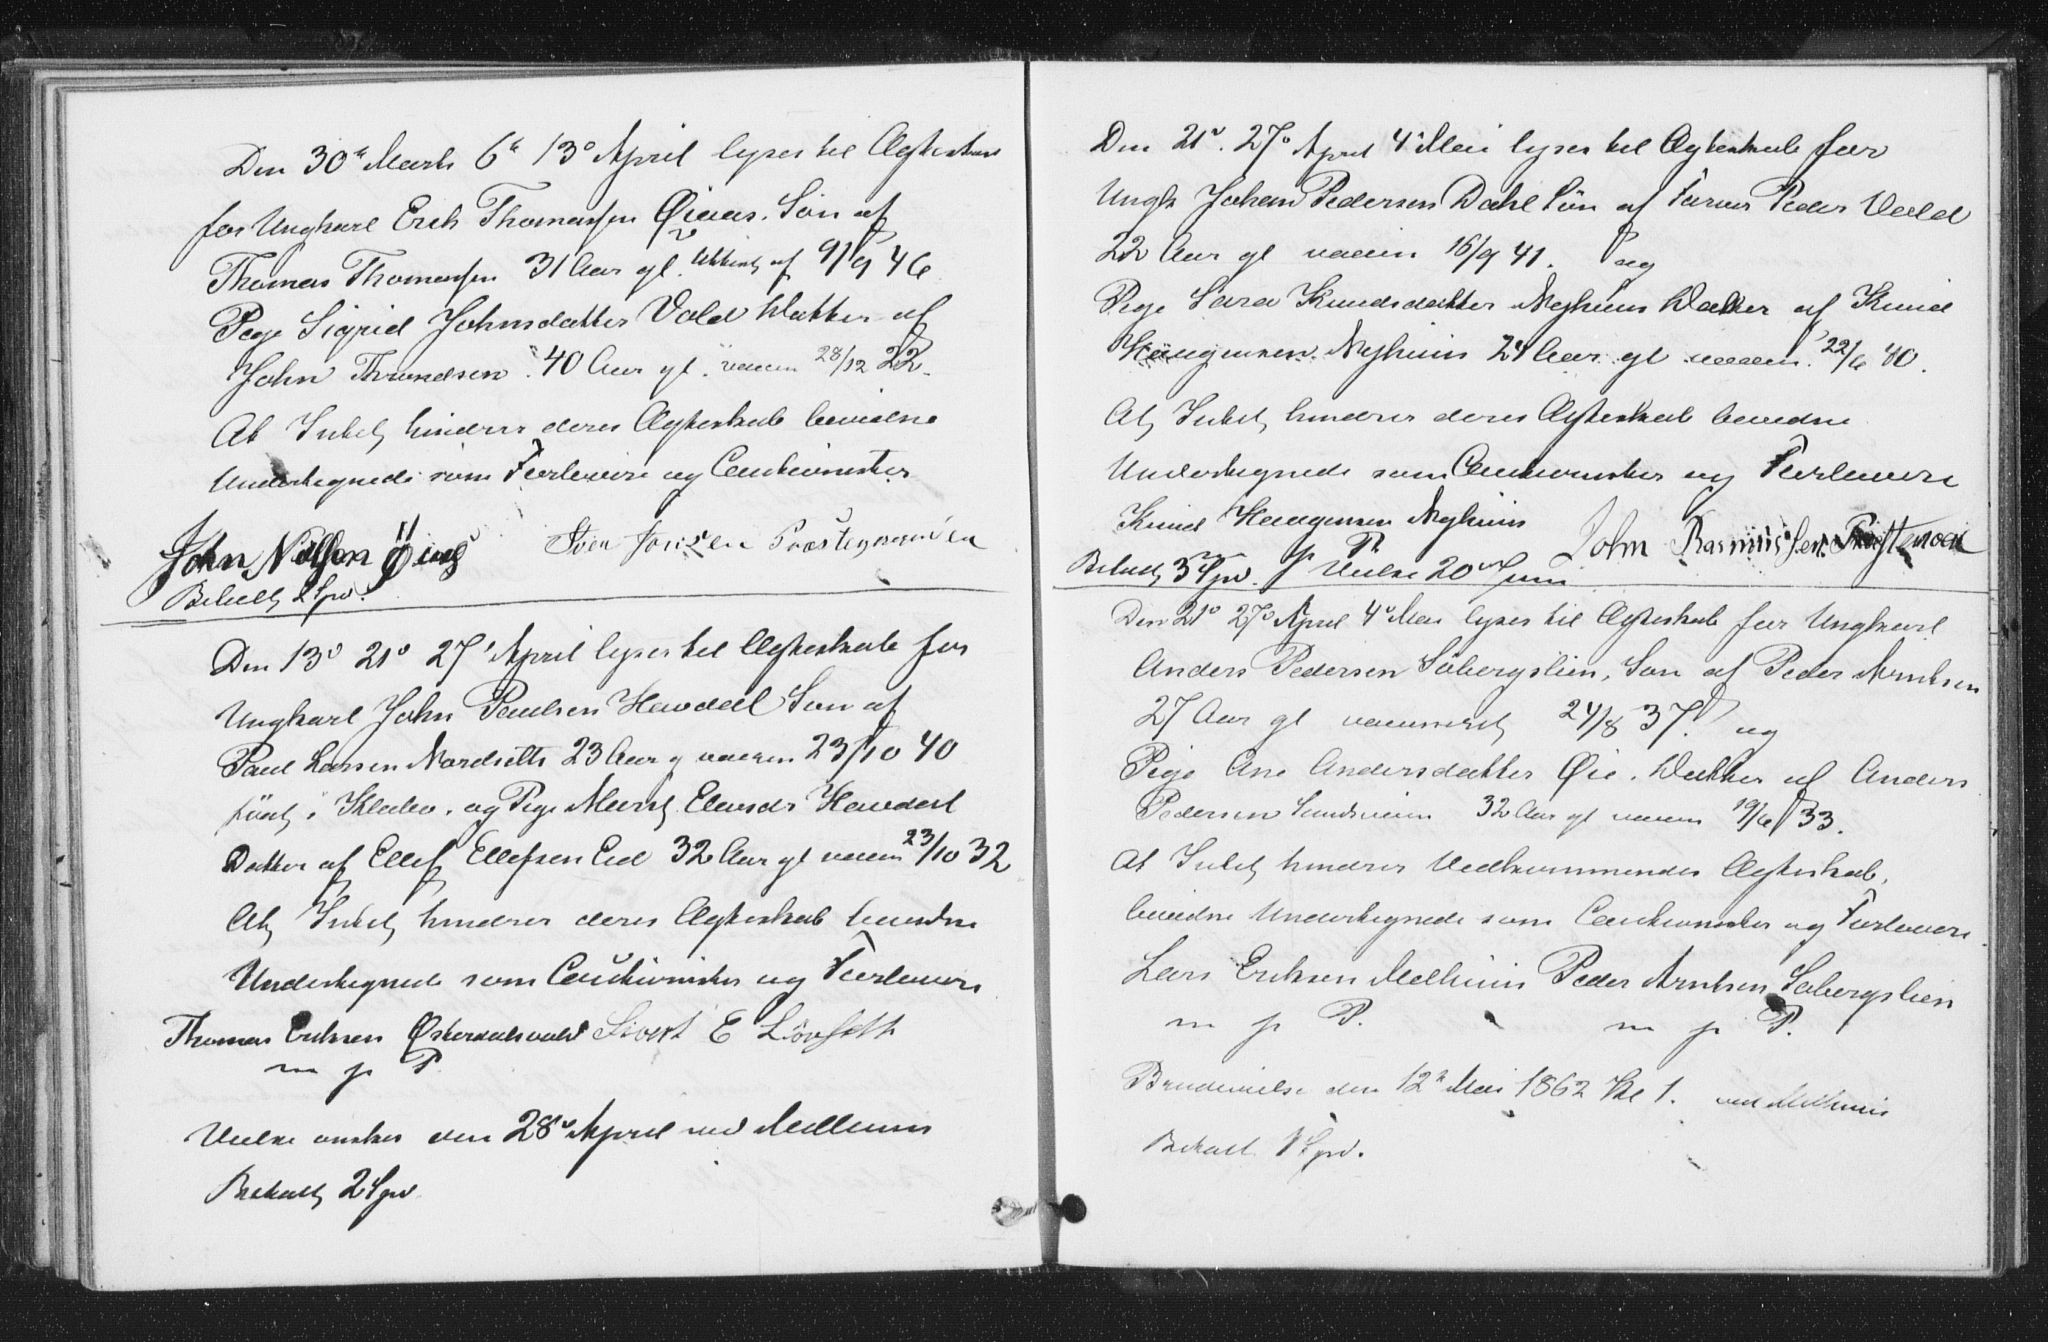 Den 30te Marts 6te 13de April lyses til Ægteskab
for Ungkarl Erik Thomassen Øiaas. Søn af
Thomas Thomassen 31 Aar gl. Udkast af 9/9 46
Pige Sigrid Johnsdatter Vold Datter af
John Thrundsen 40 Aar gl. vaccin 28/12 22.
At Intet hindrer deres Ægteskab bevidne
Undertegnede som Forlovere og Cautionister
John Nilssen Øiaas Sven Jonsen
Betalt 2 Spd.
Den 13de 21de 27de April lyses til Ægteskab for
Ungkarl John Paulsen Havdal Søn af
Paul Larsen Nordsetts 23 Aar g vaccin 23/10 40
født i Klæbo. og Pige Marit Elevsdr Havdal
Datter af Ellef Ellefsen Eid 32 Aar gl vaccin 23/10 32
At Intet hindrer deres Ægteskab bevidne
Undertegnede som Cautionister og Forlovere
Thomas Eriksen Sivert E Løvseth
m p P.
Vielse ønskes den 28de April ved Melhuus
Betalt 2 Spd
Den 21de 27de April 4de Mai lyses til Ægteskab for
Ungk Johan Pedersen Dahl Søn af Peder Vold
22 Aar gl vaccin 16/9 41. og
Pige Sara Knudsdatter Nyhuus Datter af Knud
Haagensen Nyhuus 24 Aar gl vaccin 22/6 40.
At Intet hindrer deres Ægteskab bevidne
Undertegnede som Cautionister og Forlovere
Knud Haagensen Nyhuus John Rasmussen
m p P.
Betalt 3 Spd. Vielse 20de Juni
Den 21de 27de April 4de Mai lyses til Ægteskab for Ungkarl
Anders Pedersen Søbergslien, Søn af Peder Arntsen
27 Aar gl vaccineret 24/8 37. og
Pige Ane Andersdatter Øie. Datter af Anders
Pedersen 32 Aar gl vaccin 19/6 33.
At Intet hindrer Vedkommendes Ægteskab,
bevidne Undertegnede som Cautionister og Forlovere
Lars Eriksen Melhuus Peder Arntsen Søbergslien
m p P. m p P.
Brudevielse den 12te Mai 1862 Kl 1. ved Melhuus
Betalt 1 Spd.